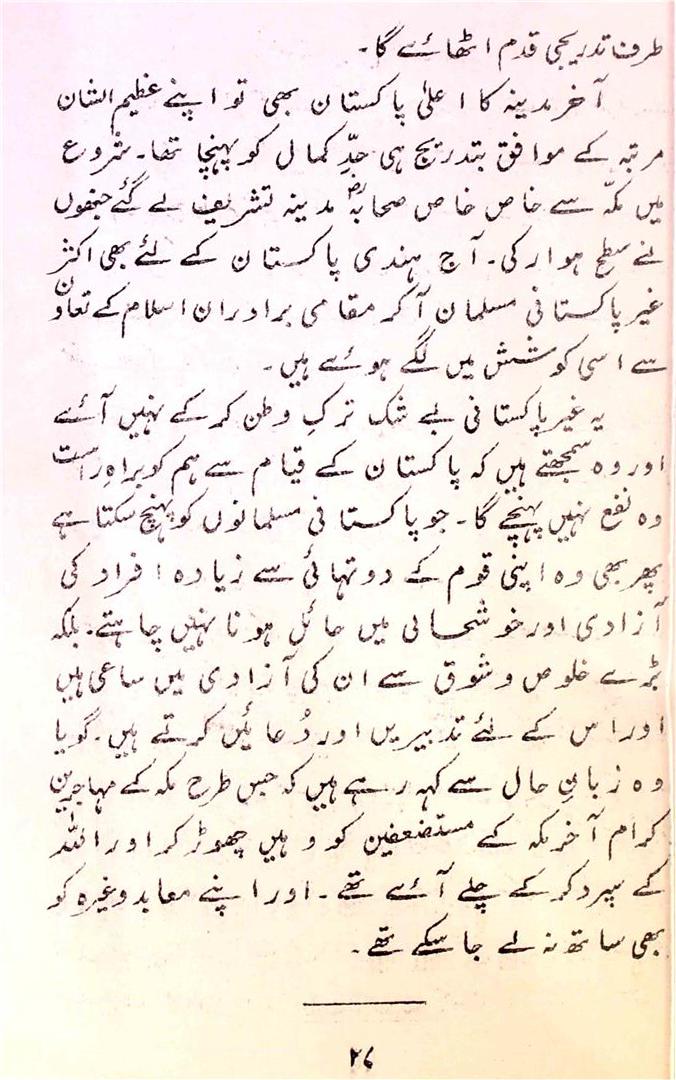 طرف تدریجی قدم اٹھائے گا۔
آخر مدینہ کا اعلیٰ پاکستان بھی تو اپنے عظیم الشان
مرتبہ کے موافق بتدریج ہی حدِّ کمال کو پہنچا تھا۔ شروع
میں مکّہ سے خاص خاص صحابہؓ مدینہ تشریف لے گئے جنھوں
نے سطح ہموار کی۔ آج ہندی پاکستان کے لئے بھی اکثر
غیر پاکستانی مسلمان آ کر مقامی برادران اسلام کے تعاون
سے اسی کوشش میں لگے ہوئے ہیں۔
یہ غیر پاکستانی بے شک ترکِ وطن کر کے نہیں آئے
اور وہ سمجھتے ہیں کہ پاکستان کے قیام سے ہم کو براہِ راست
وہ نفع نہیں پہنچے گا۔ جو پاکستانی مسلمانوں کو پہنچ سکتا ہے
پھر بھی وہ اپنی قوم کے دو تہائی سے زیادہ افراد کی
آزادی اور خوشحالی میں حائل ہونا نہیں چاہتے۔ بلکہ
بڑے خلوص و شوق سے ان کی آزادی میں ساعی ہیں
اور اس کے لئے تدبیریں اور دُعائیں کرتے ہیں۔ گویا
وہ زبانِ حال سے کہہ رہے ہیں کہ جس طرح مکہ کے مہاجرین
کرام آخر مکہ کے مستضعفین کو وہیں چھوڑ کر اور اللہ
کے سپرد کر کے چلے آئے تھے۔ اور اپنے معابد وغیرہ کو
بھی ساتھ نہ لے جا سکے تھے۔
۲۷